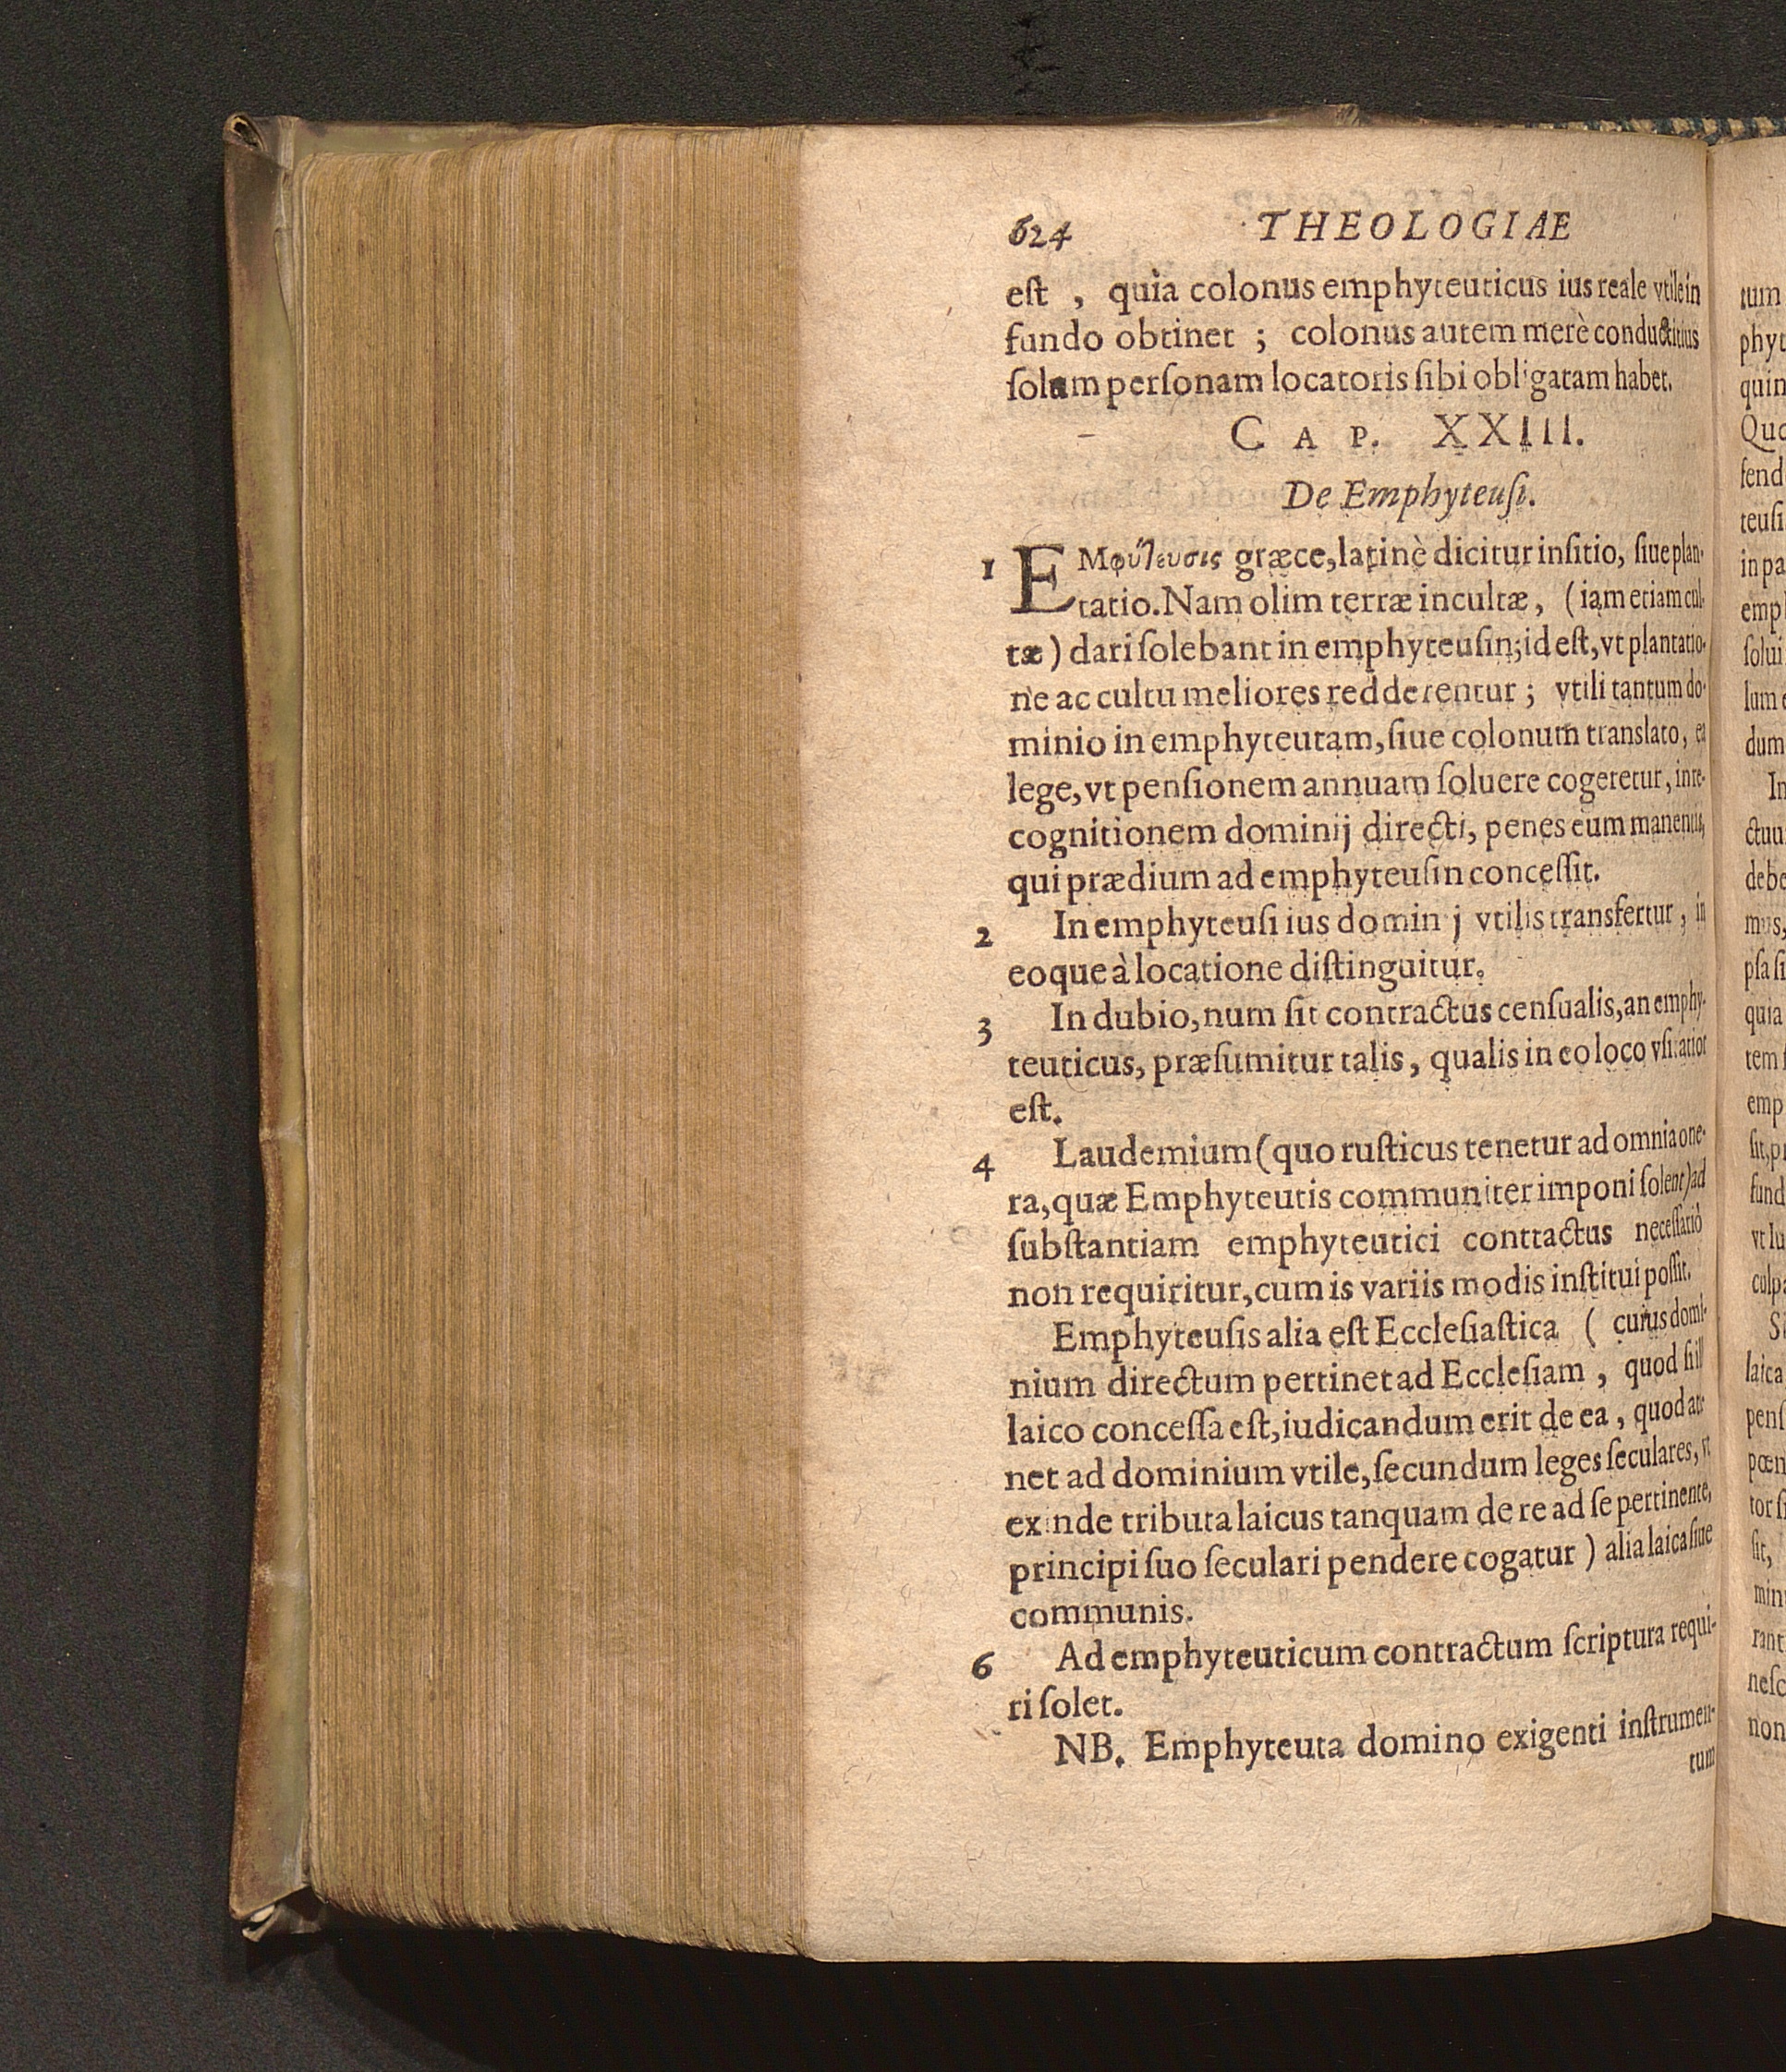 624 THEOLOGIAE
eſt , quia colonus emphyteuticus ius reale vtile in
fundo obtinet ; colonus autem merè conductitius
ſolum perſonam locatoris ſibi obligatam habet.
CAP. XXIII.
De Emphyteuſi.
1 EMφύτευσις græce, latinè dicitur inſitio, ſiue plan-
tatio. Nam olim terræ incultæ, (iam etiam cul-
tæ) dari ſolebant in emphyteuſin; id eſt, vt plantatio-
ne ac cultu meliores redderentur ; vtili tantum do-
minio in emphyteutam, ſiue colonum translato, ea
lege, vt penſionem annuam ſoluere cogeretur, in re-
cognitionem dominij directi, penes eum manentis,
qui prædium ad emphyteuſin conceſſit.
2 In emphyteuſi ius dominij vtilis transfertur, in
eoque à locatione diſtinguitur.
3 In dubio, num ſit contractus cenſualis, an emphy-
teuticus, præſumitur talis, qualis in eo loco vſitatior
eſt.
4 Laudemium (quo ruſticus tenetur ad omnia one-
ra, quæ Emphyteutis communiter imponi ſolent) ad
ſubſtantiam emphyteutici contractus neceſſariò
non requiritur, cum is variis modis inſtitui poſſit.
Emphyteuſis alia eſt Eccleſiaſtica ( cuius domi-
nium directum pertinet ad Eccleſiam , quod ſi ill
laico conceſſa eſt, iudicandum erit de ea , quod atti-
net ad dominium vtile, ſecundum leges ſeculares, vt
exinde tributa laicus tanquam de re ad ſe pertinente,
principi ſuo ſeculari pendere cogatur ) alia laica ſiue
communis.
6 Ad emphyteuticum contractum ſcriptura requi-
ri ſolet.
NB. Emphyteuta domino exigenti inſtrumen-
tum
tum
phyt
quin
Quo
fend
teuſi
in pa
emp
ſolui
lum
dum
In
ctuu
debe
mus,
pſa ſi
quia
tem
emp
ſit, p
fund
vt lu
culp
Si
laica
penſ
pœn
tor ſi
ſit,
min
rant
neſc
non